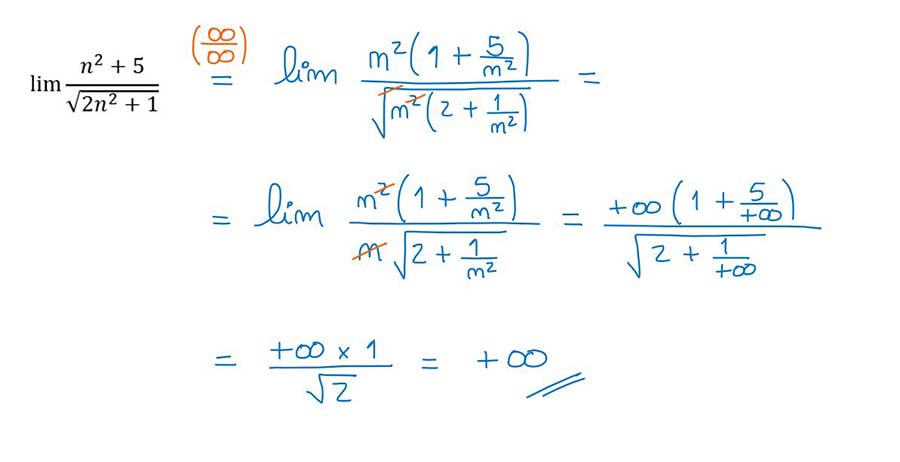 lim (n² + 5)/√(2n² + 1) (∞/∞) = lim m²(1 + 5/m²)/√(m²(2 + 1/m²)) =
= lim m²(1 + 5/m²)/(m√(2 + 1/m²)) = +∞(1 + 5/+∞)/√(2 + 1/+∞)
= (+∞ × 1)/√2 = +∞